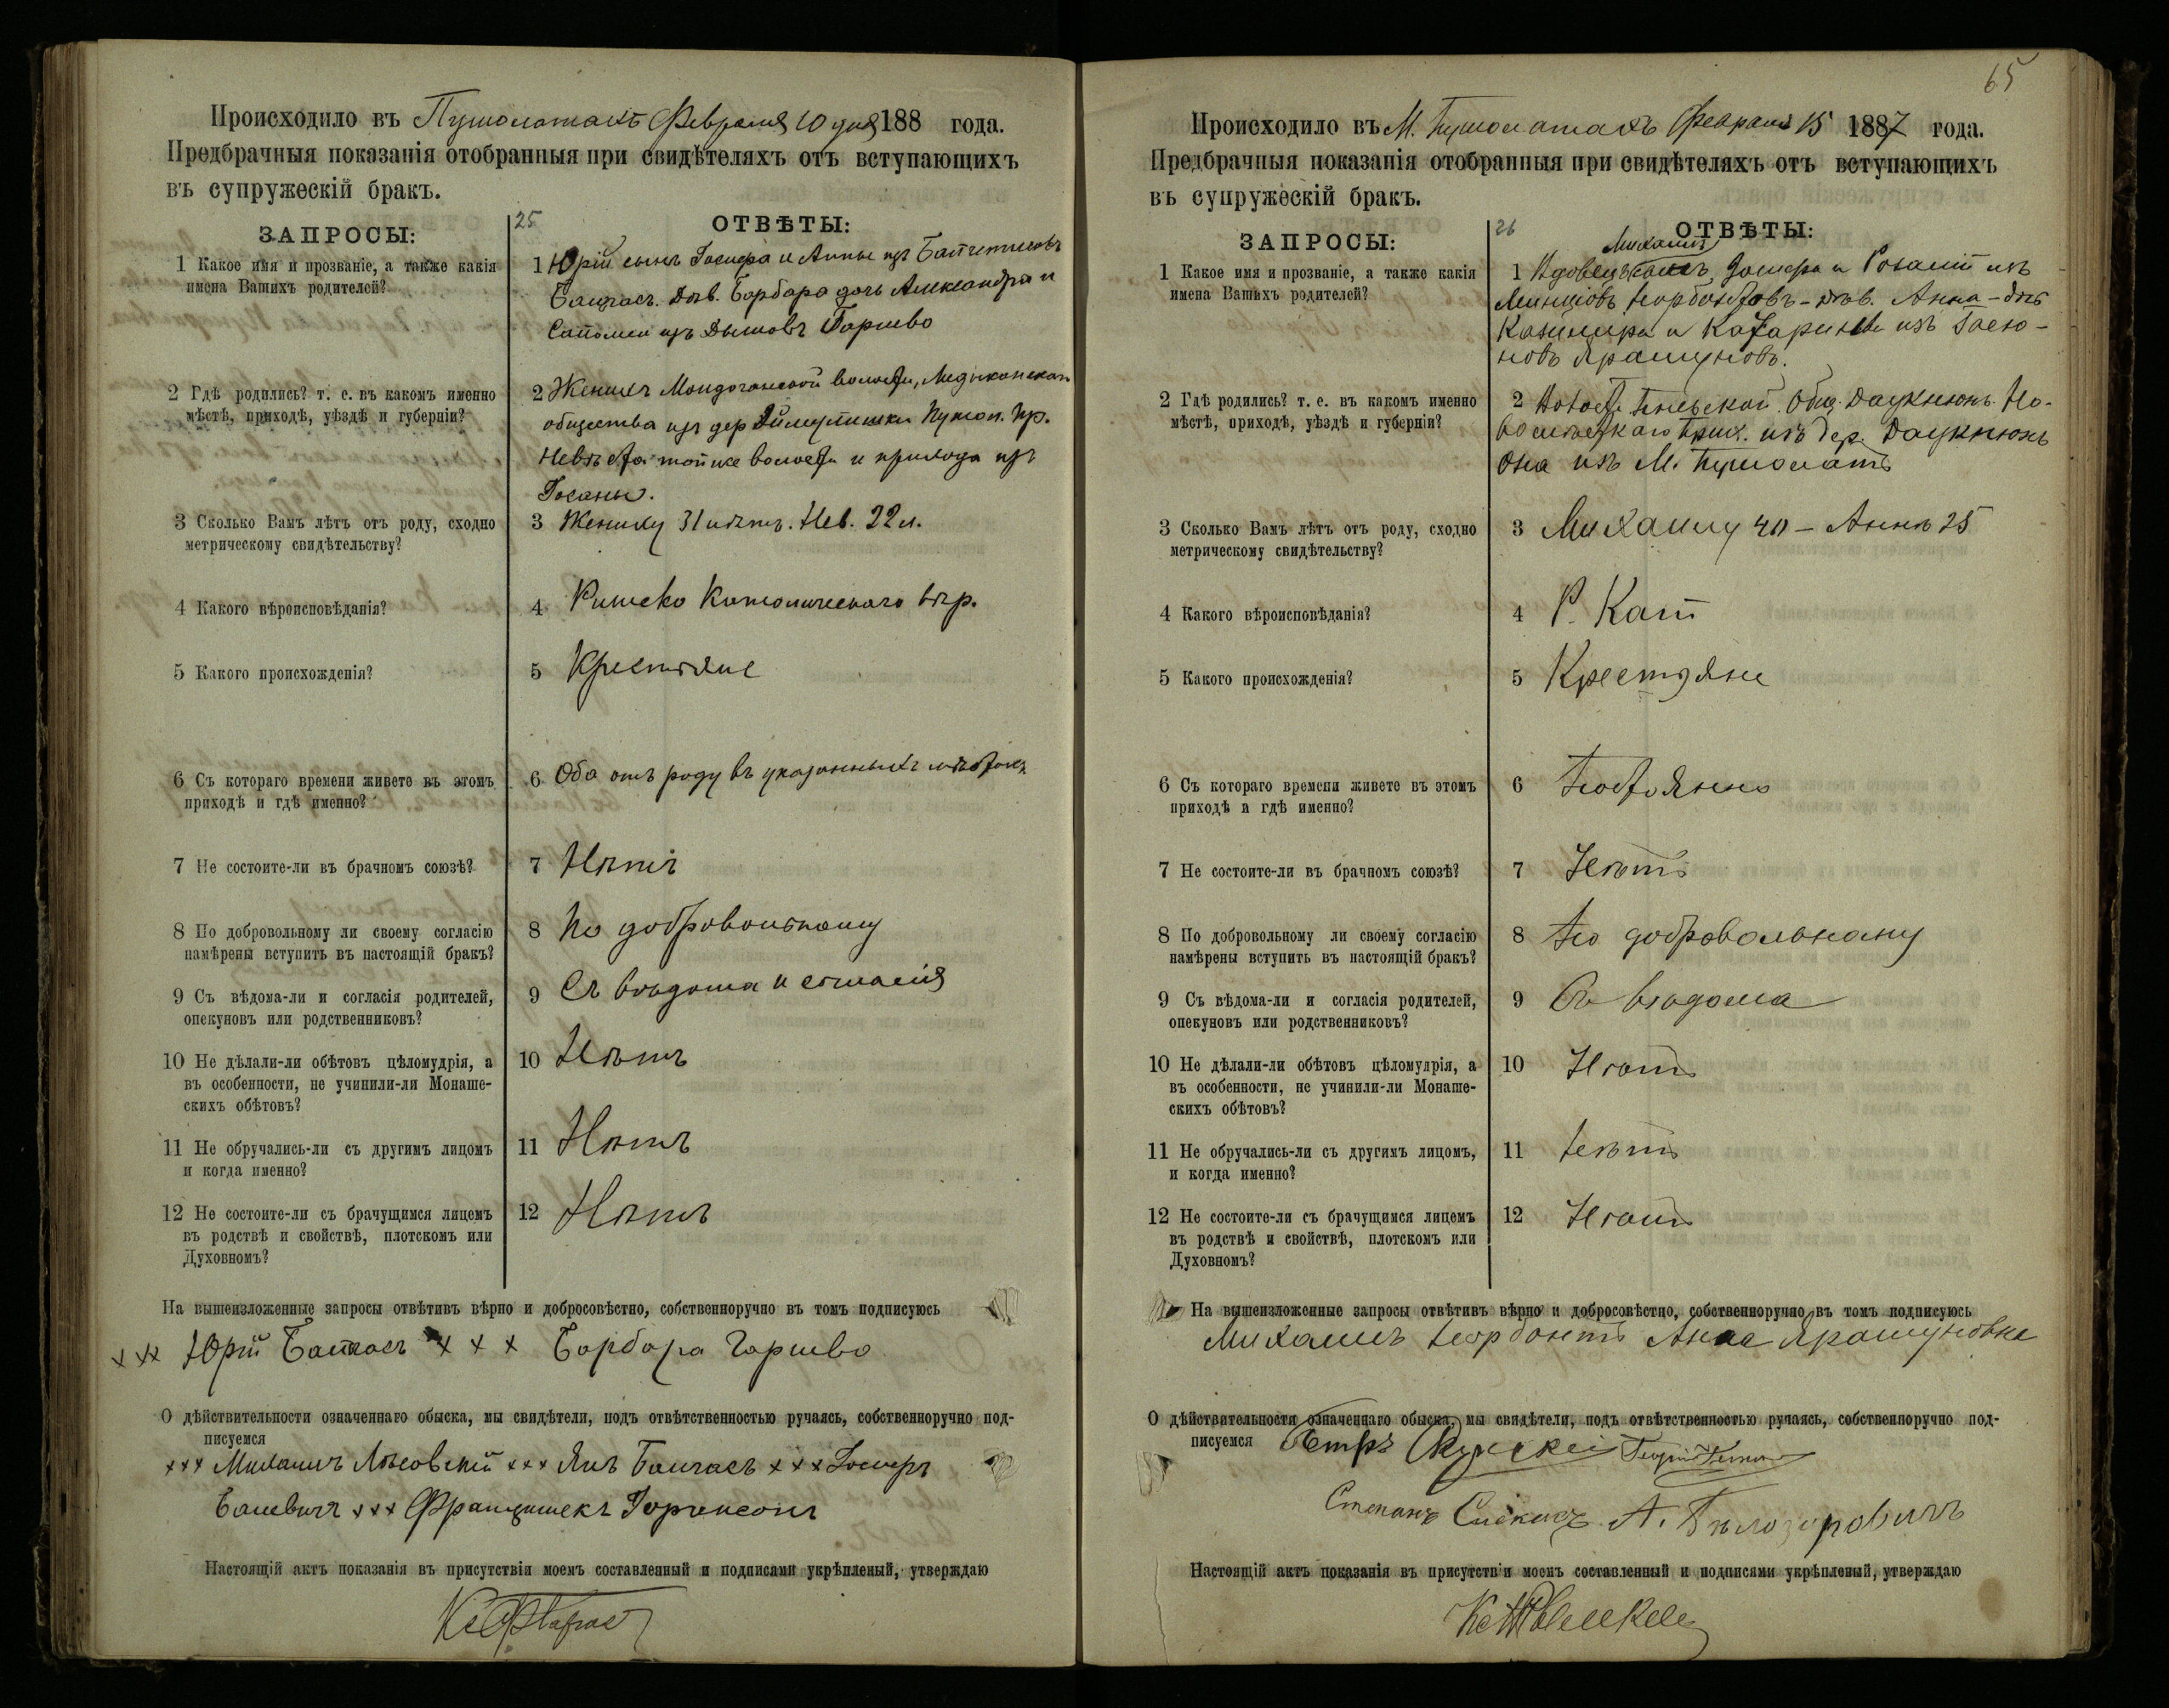 Происходило въ Пушолатахъ Февраля 10 дня 188 года.
Предбрачныя показанія отобранныя при свидѣтеляхъ отъ вступающихъ
въ супружескій бракъ.
ЗАПРОСЫ:
25
ОТВѢТЫ:
1 Какое имя и прозваніе, а также какія
имена Вашихъ родителей?
1 Юрій сынъ Іосифа и Анны изъ
Дѣв. Барбара дочь Александра и
Саломеи изъ
2 Гдѣ родились? т. е. въ какомъ именно
мѣстѣ, приходѣ, уѣздѣ и губерніи?
2 Женихъ волости,
общества изъ дер Пушол. пр.
Невѣста тойже волости и прихода изъ
3 Сколько Вамъ лѣтъ отъ роду, сходно
метрическому свидѣтельству?
3 Жениху 31 лѣтъ. Нев. 22 л.
4 Какого вѣроисповѣданія?
4 Римско Католическаго вѣр.
5 Какого происхожденія?
5 Крестьяне
6 Съ котораго времени живете въ этомъ
приходѣ и гдѣ именно?
6 Оба отъ роду въ указанныхъ мѣстахъ
7 Не состоите-ли въ брачномъ союзѣ?
7 Нѣтъ
8 По добровольному ли своему согласію
намѣрены вступить въ настоящій бракъ?
8 По добровольному
9 Съ вѣдома-ли и согласія родителей,
опекуновъ или родственниковъ?
9 Съ вѣдома и согласія
10 Не дѣлали-ли обѣтовъ цѣломудрія, а
въ особенности, не учинили-ли Монаше-
скихъ обѣтовъ?
10 Нѣтъ
11 Не обручались-ли съ другимъ лицомъ
и когда именно?
11 Нѣтъ
12 Не состоите-ли съ брачущимся лицемъ
въ родствѣ и свойствѣ, плотскомъ или
Духовномъ?
12 Нѣтъ
На вышеизложенные запросы отвѣтивъ вѣрно и добросовѣстно, собственноручно въ томъ подписуюсь
ххх Юрій х х х Барбара Гаршво
О дѣйствительности означеннаго обыска, мы свидѣтели, подъ отвѣтственностью ручаясь, собственноручно под-
писуемся
ххх Михаилъ ххх Янъ ххх Іосифъ
ххх Францишекъ
Настоящій актъ показанія въ присутствіи моемъ составленный и подписами укрѣпленый, утверждаю
65
Происходило въ М. Пушолатахъ Февраля 15 1887 года.
Предбрачныя показанія отобранныя при свидѣтеляхъ отъ вступающихъ
въ супружескій бракъ.
ЗАПРОСЫ:
26
ОТВѢТЫ:
Михаилъ
1 Какое имя и прозваніе, а также какія
имена Вашихъ родителей?
1 Вдовецъ Іосифа и Розаліи изъ
Нарбонтовъ – дѣв. Анна – дочь
Казимира и Катарины изъ
Ярашуновъ.
2 Гдѣ родились? т. е. въ какомъ именно
мѣстѣ, приходѣ, уѣздѣ и губерніи?
2 Общ. Даукнюнъ По-
прих. изъ дер. Даукнюнъ
Она изъ М. Пушолатъ
3 Сколько Вамъ лѣтъ отъ роду, сходно
метрическому свидѣтельству?
3 Михаилу 40 – Аннѣ 25
4 Какого вѣроисповѣданія?
4 Р. Кат
5 Какого происхожденія?
5 Крестьяне
6 Съ котораго времени живете въ этомъ
приходѣ а гдѣ именно?
6 Постоянно
7 Не состоите-ли въ брачномъ союзѣ?
7 Нѣтъ
8 По добровольному ли своему согласію
намѣрены вступить въ настоящій бракъ?
8 По добровольному
9 Съ вѣдома-ли и согласія родителей,
опекуновъ или родственниковъ?
9 Съ вѣдома
10 Не дѣлали-ли обѣтовъ цѣломудрія, а
въ особенности, не учинили-ли Монаше-
скихъ обѣтовъ?
10 Нѣтъ
11 Не обручались-ли съ другимъ лицомъ,
и когда именно?
11 Нѣтъ
12 Не состоите-ли съ брачущимся лицемъ
въ родствѣ и свойствѣ, плотскомъ или
Духовномъ?
12 Нѣтъ
На вышеизложенные запросы отвѣтивъ вѣрно и добросовѣстно, собственноручно въ томъ подписуюсь
Михаилъ Нарбонтъ Анна Ярашуновна
О дѣйствительности означеннаго обыска, мы свидѣтели, подъ отвѣтственностью ручаясь, собственноручно под-
писуемся Петръ
Степанъ А. Бѣлозаровичъ
Настоящій актъ показанія въ присутствіи моемъ составленный и подписями укрѣпленый, утверждаю